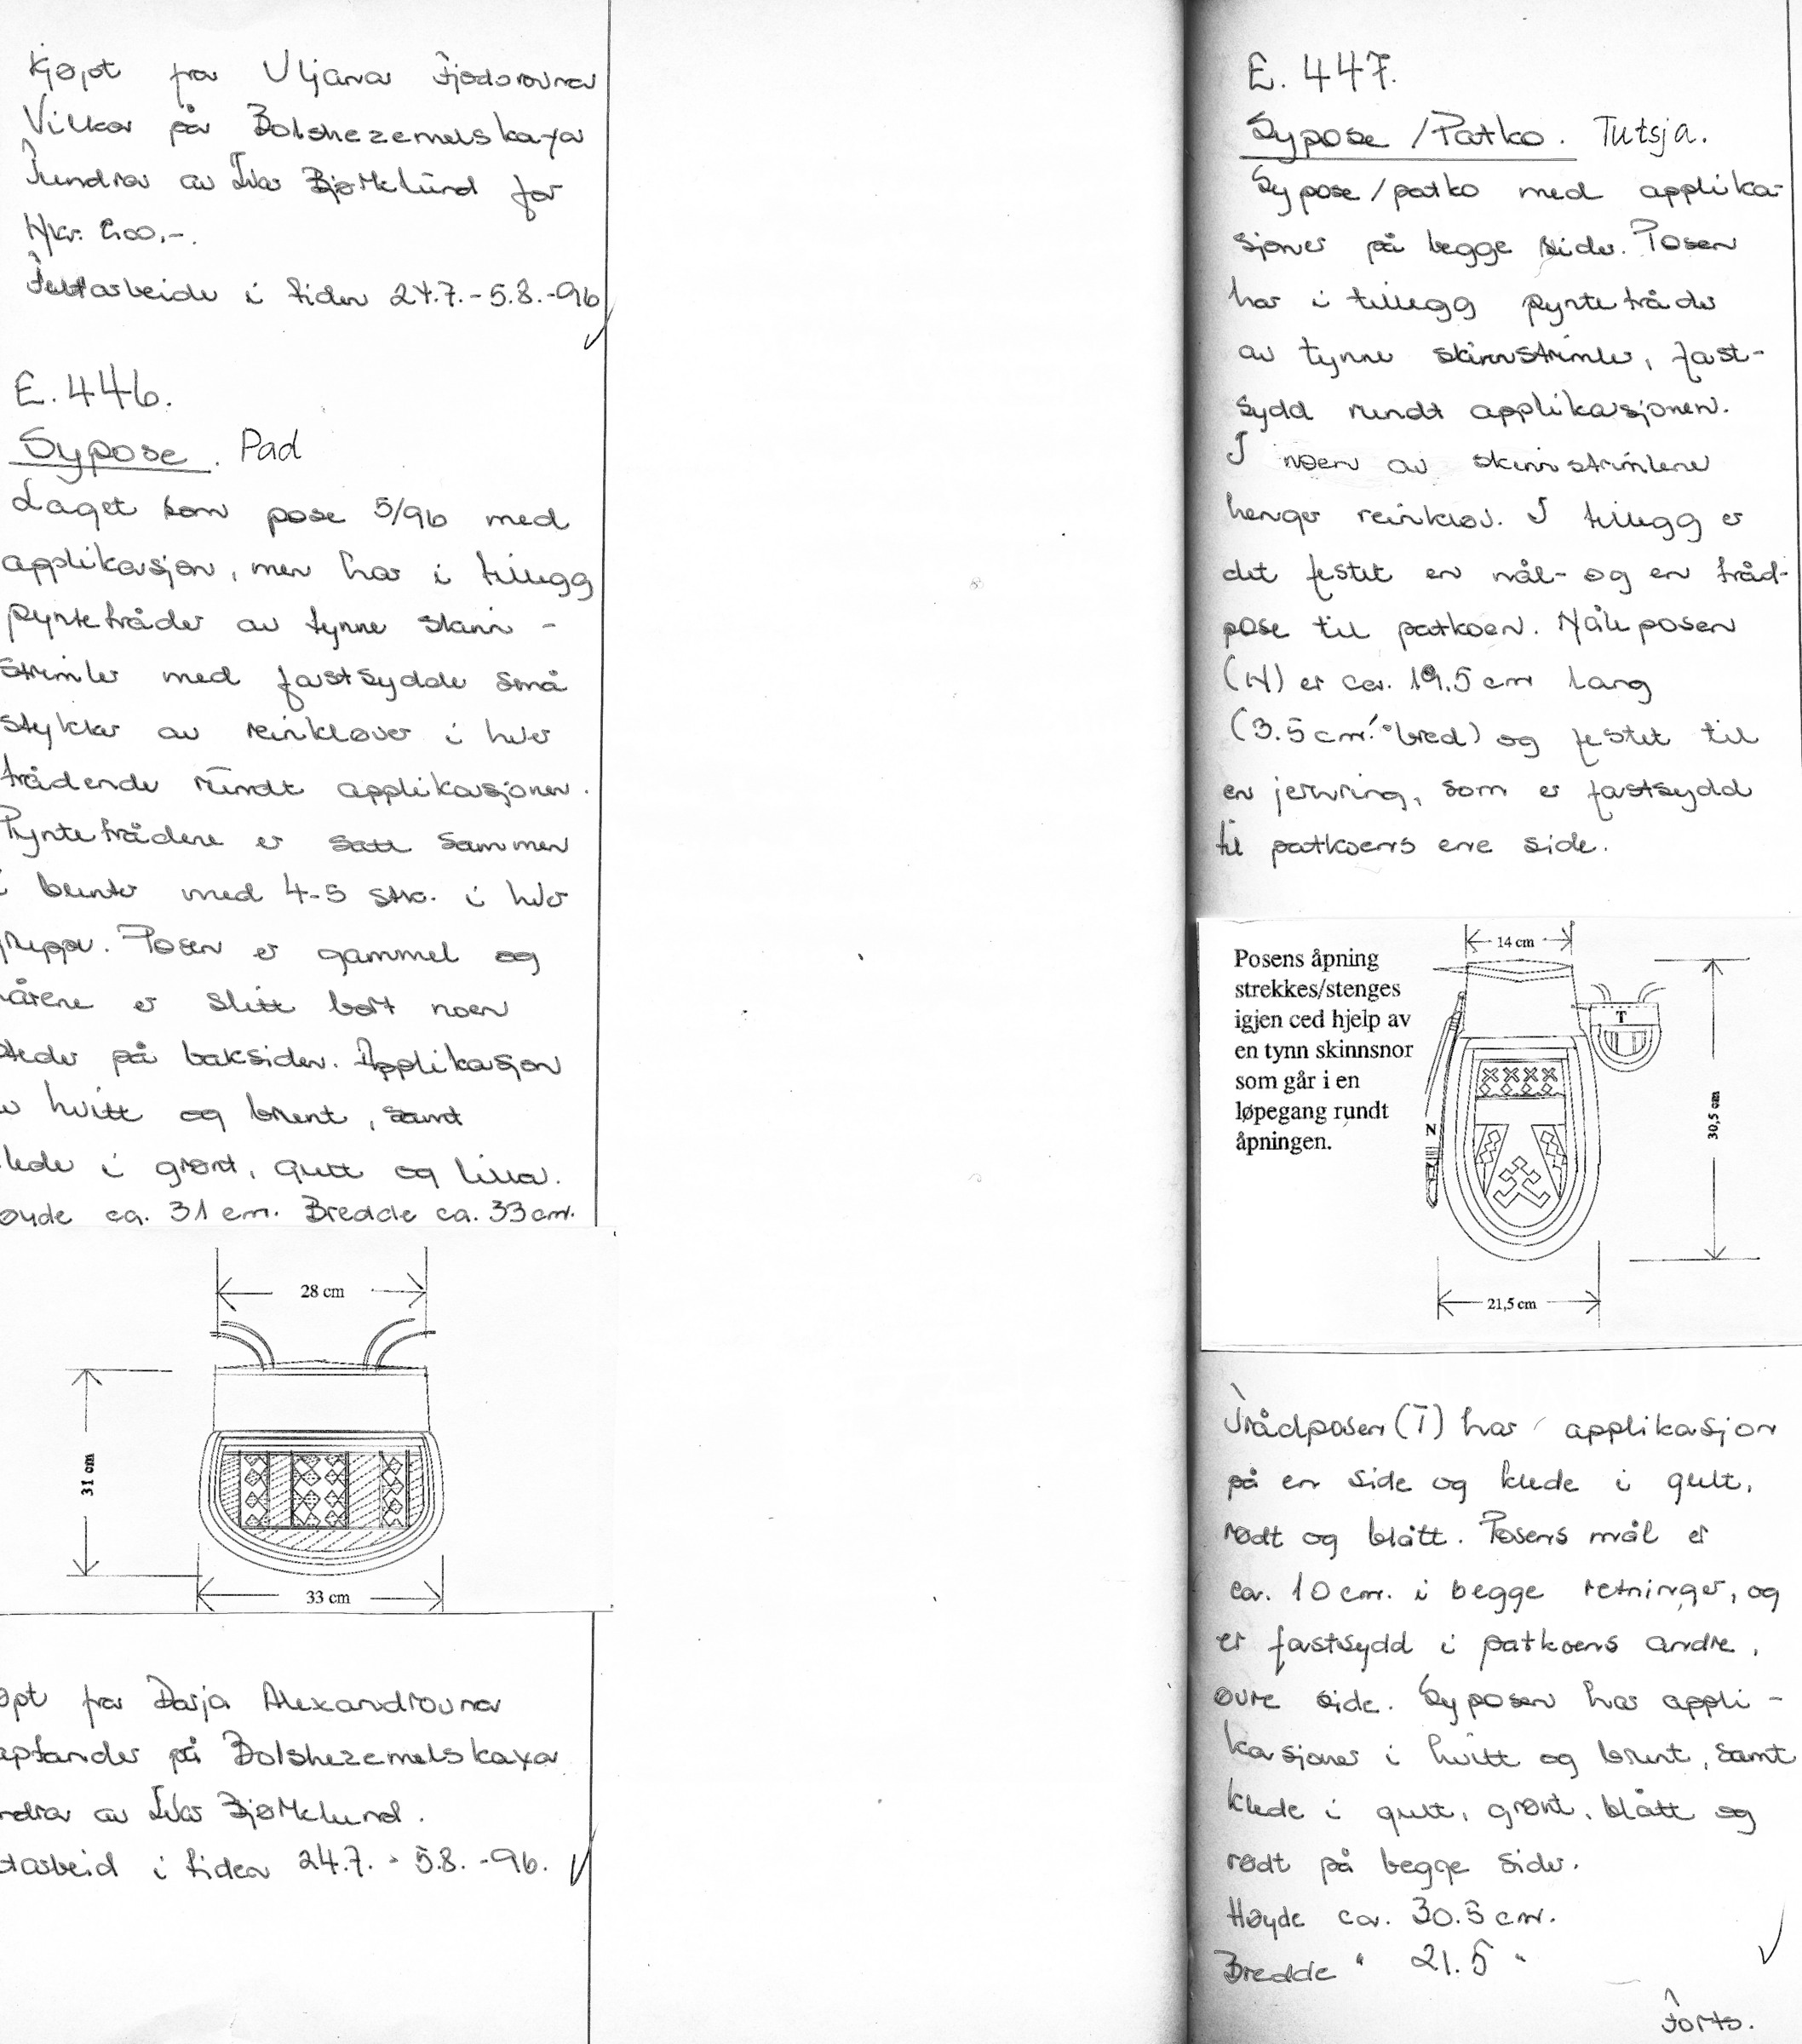 Kjøpt fra Uljana Fjodorovna
Vilka på Bolshezemelskaya
Tundra av Ivar Bjørklund for
Nkr. 200,-.
Feltarbeide i tiden 24.7.-5.8.-96
E. 446.
Sypose. Pad
Laget som pose 5/96 med
applikasjon, men har i tillegg
pyntetråder av tynne skinn -
strimler med fastsydde små
stykker av reinkløver i hver
trådende rundt applikasjonen.
Pyntetrådene er satt sammen
i bunter med 4-5 stk. i hver
gruppe. Posen er gammel og
hårene er slitt bort noen
steder på baksiden. Applikasjon
hvitt og brunt, samt
klede i grønt, gult og lilla.
øyde ca. 31 cm. Bredde ca. 33 cm.
28 cm
31 cm
33 cm
øpt fra Darja Alexandrovna
aptander på Bolshezemelskaya
ndra av Ivar Bjørklund.
tarbeid i tiden 24.7. - 5.8. -96.
E. 447.
Sypose /Patko. Tutsja.
Sypose/patko med applika-
sjoner på begge sider. Posen
har i tillegg pyntetråder
av tynne skinnstrimler, fast-
sydd rundt applikasjonen.
I noen av skinnstrimlene
henger reinkløv. I tillegg er
det festet en nål- og en tråd-
pose til patkoen. Nåleposen
(N) er ca. 19.5 cm lang
(3.5 cm. bred) og festet til
en jernring, som er fastsydd
til patkoens ene side.
Posens åpning
strekkes/stenges
igjen ced hjelp av
en tynn skinnsnor
som går i en
løpegang rundt
åpningen.
14 cm
T
N
30,5 cm
21,5 cm
Trådposen (T) har applikasjon
på en side og klede i gult,
rødt og blått. Posens mål er
ca. 10 cm. i begge retninger, og
er fastsydd i patkoens andre,
øvre side. Syposen har appli -
kasjoner i hvitt og brunt, samt
klede i gult, grønt, blått og
rødt på begge sider.
Høyde ca. 30.5 cm.
Bredde " 21.5 "
Forts.